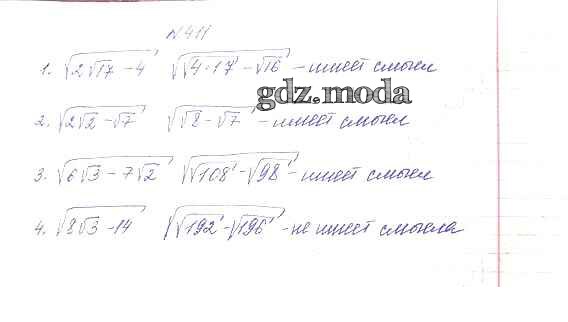 № 411
1. √(2√17 - 4) √(√4·17 - √16) - имеет смысл
gdz.moda
2. √(2√2 - √7) √(√8 - √7) - имеет смысл
3. √(6√3 - 7√2) √(√108 - √98) - имеет смысл
4. √(8√3 - 14) √(√192 - √196) - не имеет смысла